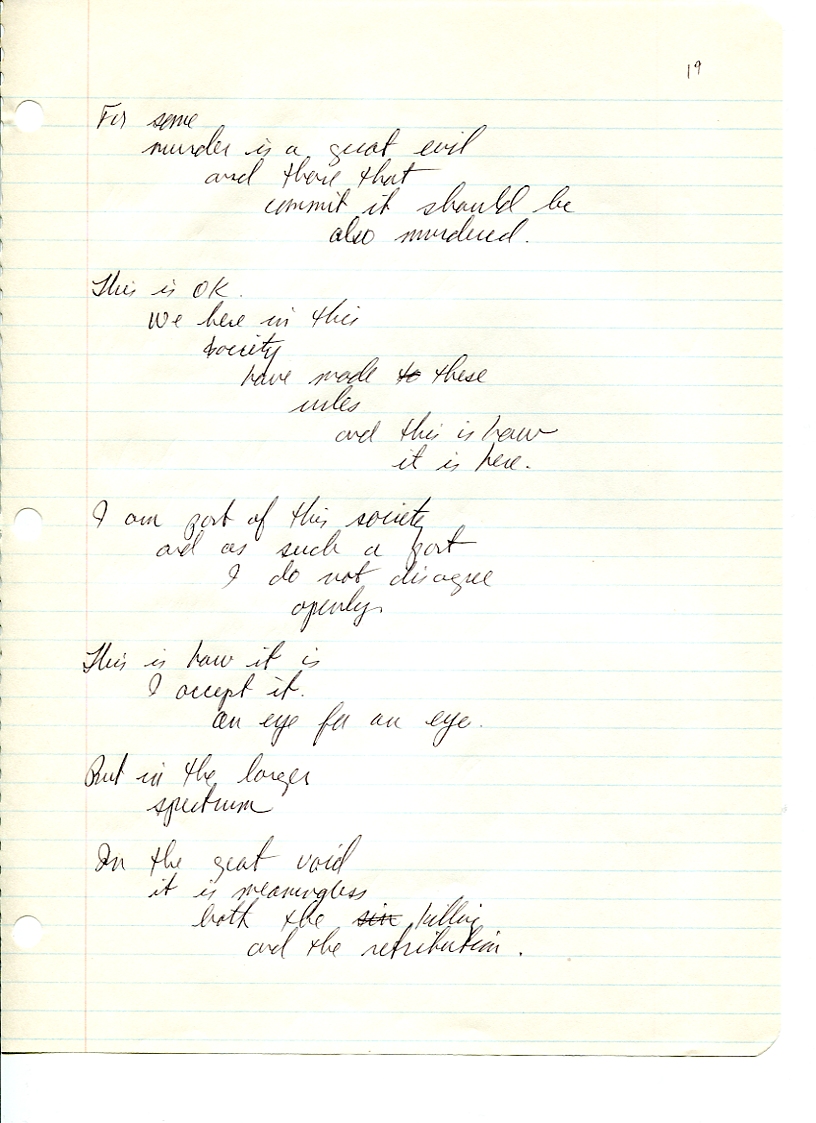 19
For some
murder is a great evil
and those that
commit it should be
also murdered.
This is OK.
We here in this
society
have made to these
rules
and this is how
it is here.
I am part of this society
and as such a part
I do not disagree
openly.
This is how it is
I accept it.
an eye for an eye.
But in the larger
spectrum
In the great void
it is meaningless
both the sin killing
and the retribution.